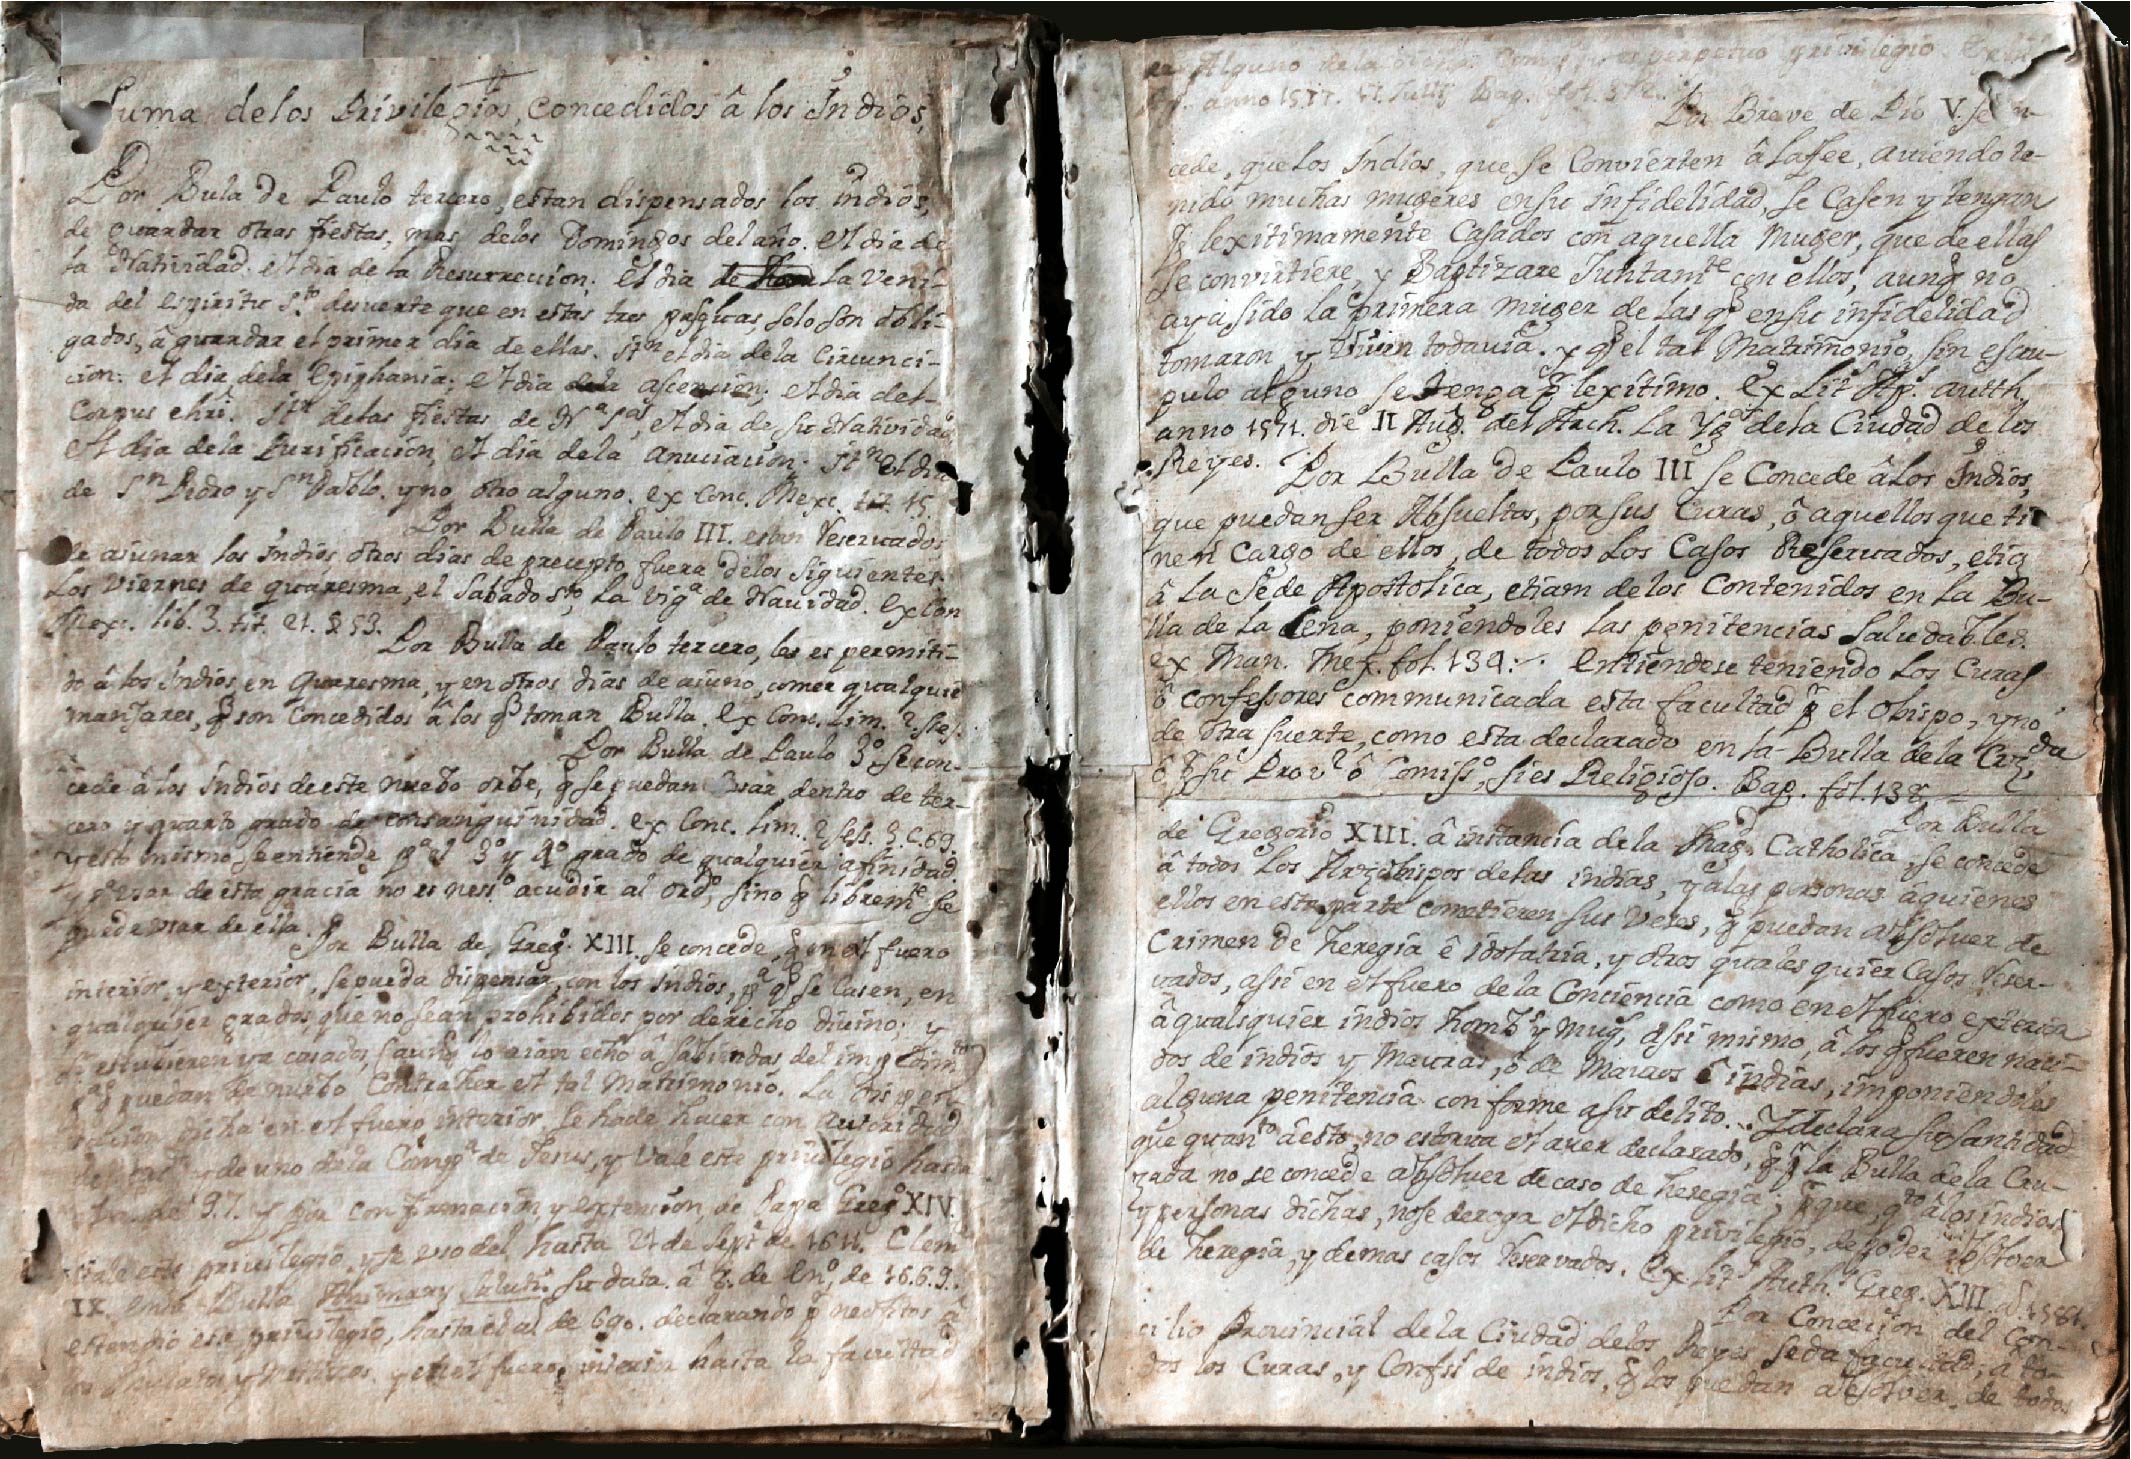 Suma de los Privilegios, concedidos â los Indios,
Por Bula de Paulo tercero, estan dispensados los indios,
de guardar otras fiestas, mas delos Domingos del año. el dia de
la Natividad. el dia de la Resurreccion. el dia la veni-
da del espiritu S.to desuerte que en estas tres pasquas, solo son obli-
gados, â guardar el primer dia de ellas. Itn el dia dela Circunci-
cion: el dia dela Epiphania: el dia ascencion; el dia del
Corpus chri. Itn delas fiestas de Na Sas, el dia de su Natividad
el dia de la Purificacion, el dia dela anuciacion. Itn el dia
de Sn Pedro y Sn Pablo. y no otro alguno. ex Conc. Mexc. tit. 15.
Por Bulla de Paulo III. estan reservados
de aiunar los indios otros dias de precepto, fuera delos siguientes
Los viernes de quaresma, el Sabado Sto, la viga de Navidad. ex Con
Mexc. lib. 3. tit. 21. § 53.
Por Bulla de Paulo tercero, les es permiti-
do â los Indios, en quaresma, y en otros dias de aiuno, comer qualquie
manjares, q̃ son concedidos â los q̃ toman Bulla. ex Conc. Lim. 2 Ses.
Por Bulla de Paulo 3º. se con-
cede â los Indios de este nuebo orbe, q̃ se puedan casar dentro de ter-
cero y quarto grado de consanguinidad. ex Conc. Lim. 2 Sess. 3. C. 69.
y esto mismo se entiende pa el 3º y 4º grado de qualquier afinidad.
y pa usar de esta gracia no es nesso acudir al ordo, sino q̃ libremte se
puede usar de ella.
Por Bulla de, Grego. XIII. se concede, q̃ en el fuero
interior, y exterior, se pueda dispensar, con los indios, pa q̃ se Casen, en
qualquier grados que no sean prohibidos por derecho divino; y
si estubieren ya casados, aunq̃ lo aian echo â sabiendas del impedimto
pa q̃ puedan de nuebo Contraher el tal Matrimonio. La dispen-
sacion dicha en el fuero interior se hade hacer con autoridad
y de uno de la Compa de Jesus, y vale este privilegio hasta
de 97. y por confirmacion, y extencion, de Papa Grego XIV.
vale este privilegio, y se uso del, hasta 21 de Septe de 1611. Clemte
IX. en la Bulla Animarum Saluti. su data. â 2. de Eno, de 1669.
estendio este privilegio, hasta el al de 690. declarando pr neofitos â
los Mulatos y Mestizos. y en el fuero, interior hasta la facultad
Alguno dela perpetuo privilegio
anno 1571. fol. 372.
Por Breve de Pio V. se con-
cede, que los Indios, que se Convierten â la fee, aviendo te-
nido muchas mugeres en su infidelidad, se Casen y tengan
pr lexitimamente Casados con aquella Muger, que de ellas
se convirtiere, y Baptizare Juntamte con ellos, aunq̃ no
aya sido la primera muger de las q̃ en su infidelidad
tomaron y viuen todauia. y q̃ el tal Matrimonio, sin escru-
pulo alguno se tenga pr lexitimo. ex Lit. Ap. autth.
anno 1571. die II Aug. del Arch. La Yga dela Ciudad de los
Reyes.
Por Bulla de Paulo III se Concede â los Indios,
que puedan ser Absueltos, por sus Curas, ô aquellos que tie
nen Cargo de ellos, de todos los Casos Reseruados, etia
â la Sede Apostolica, etiam de los Contenidos en la Bu-
lla de la Cena, poniendoles las penitencias saludables.
ex Man. Mex. fol. 139. entiendese teniendo los Curas
ô confessores communicada esta facultad pr el obispo, y no
de otra suerte, como esta declarado en la Bulla de la Cruzda
ô pr su Provl ô Comisso, si es Religioso. Bap. fol. 138.
Por Bulla
de Gregorio XIII. â instancia de la Magd Catholica, se concede
â todos los Arzobispos delas indias, y alas personas aquienes
ellos en esta parte cometieren sus veces, q̃ puedan absoluer de
Crimen de heregia ê idolatria, y otros quales quier Casos reser-
vados, assi en el fuero de la Conciencia como en el fuero exterior
â qualesquier indios hombs y mugs, assi mismo, â los q̃ fueren naci-
dos de indios y Mauras, ô de Mauros ê indias, imponiendoles
alguna penitencia conforme a su delito. Y declara su Santidad
que quanto aesto, no estorua el auer declarado, q̃ pr la Bulla de la Cru-
zada no se concede absoluer de caso de heregia; porque, qto â los indios
y personas dichas, no se deroga el dicho privilegio, de poder absoluer
de heregia, y demas casos reservados. ex Lit. Auth. Greg. XIII. ad. 1581.
Por Concecion del Con-
cilio Provincial de la Ciudad delos Reyes se da facultad, â to-
dos los Curas, y Confss de indios, q̃ los puedan absolver, de todos